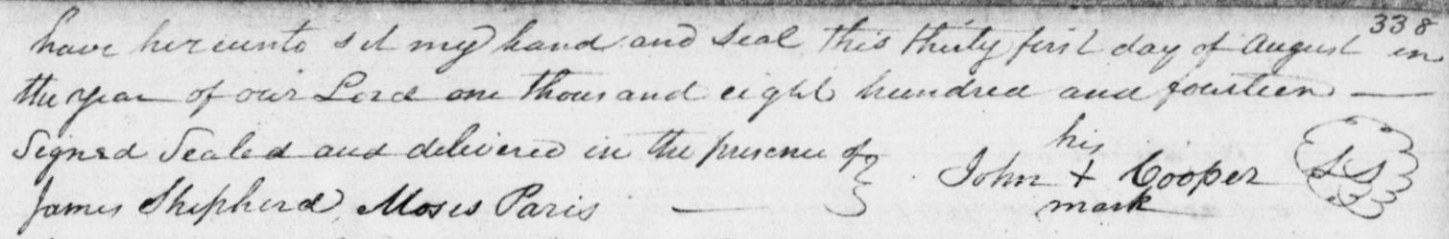 338
have hereunto set my hand and seal this thirty first day of August in
the year of our Lord one thousand eight hundred and fourteen —
Signed Sealed and delivered in the presence of } his
John + Cooper LS
James Shepherd Moses Paris — mark